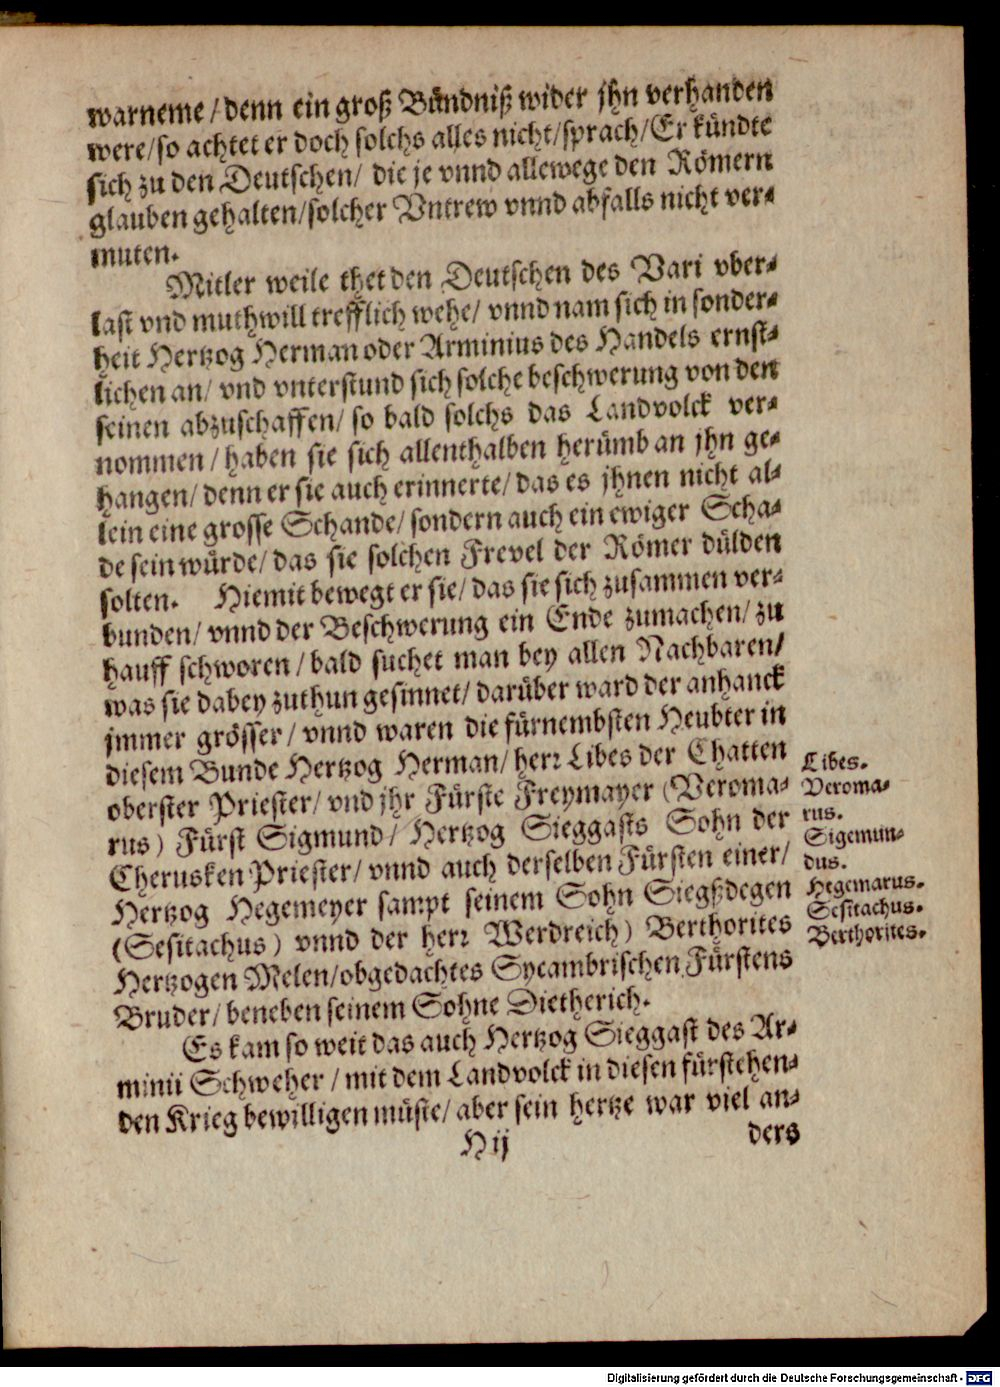 warneme/denn ein groß Bündniß wider jhn verhanden
were/so achtet er doch solchs alles nicht/sprach/Er kündte
sich zu den Deutschen/ die je vnnd allewege den Römern
glauben gehalten/solcher Vntrew vnnd abfalls nicht ver-
muten.
Mitler weile thet den Deutschen des Vari vber-
last vnd muthwill trefflich wehe/ vnnd nam sich in sonder-
heit Hertzog Herman oder Arminius des Handels ernst-
lichen an/ vnd vnterstund sich solche beschwerung von den
seinen abzuschaffen/ so bald solchs das Landvolck ver-
nommen/haben sie sich allenthalben herümb an jhn ge-
hangen/denn er sie auch erinnerte/das es jhnen nicht al-
lein eine grosse Schande/sondern auch ein ewiger Scha-
de sein würde/das sie solchen Frevel der Römer dülden
solten. Hiemit bewegt er sie/das sie sich zusammen ver-
bunden/ vnnd der Beschwerung ein Ende zumachen/ zu
hauff schworen/bald suchet man bey allen Nachbaren/
was sie dabey zuthun gesinnet/darüber ward der anhanck
jmmer grösser/ vnnd waren die fürnembsten Heubter in
diesem Bunde Hertzog Herman/ herr Libes der Chatten
oberster Priester/ vnd jhr Fürste Freymayer (Veroma-
rus) Fürst Sigmund/ Hertzog Sieggasts Sohn der
Cherusken Priester/ vnnd auch derselben Fürsten einer/
Hertzog Hegemeyer sampt seinem Sohn Siegßdegen
(Sesitachus) vnnd der herr Werdreich) Berthorites
Hertzogen Melen/obgedachtes Sycambrischen Fürstens
Bruder/beneben seinem Sohne Dietherich.
Es kam so weit das auch Hertzog Sieggast des Ar-
minii Schweher/mit dem Landvolck in diesen fürstehen-
den Krieg bewilligen müste/aber sein hertze war viel an-
H ij
ders
Libes.
Veroma-
rus.
Sigemun-
dus.
Hegemarus.
Sesitachus.
Berthorites.
Digitalisierung gefördert durch die Deutsche Forschungsgemeinschaft - DFG